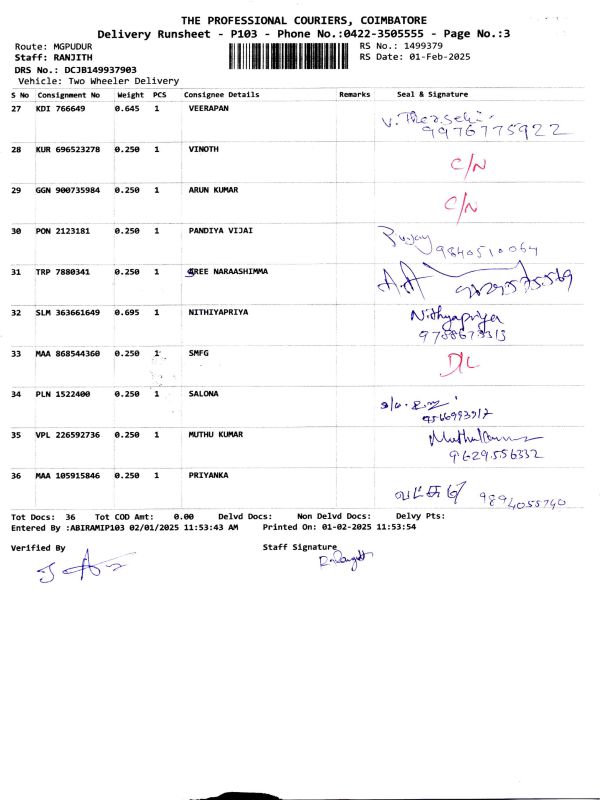 THE PROFESSIONAL COURIERS, COIMBATORE
Delivery Runsheet - P103 - Phone No.:0422-3505555 - Page No.:3
Route: MGPUDUR
RS No.: 1499379
Staff: RANJITH
RS Date: 01-Feb-2025
DRS No.: DCJB149937903
Vehicle: Two Wheeler Delivery
S No Consignment No Weight PCS Consignee Details Remarks Seal & Signature
27 KDI 766649 0.645 1 VEERAPAN
9976775922
28 KUR 696523278 0.250 1 VINOTH C/N
29 GGN 900735984 0.250 1 ARUN KUMAR C/N
30 PON 2123181 0.250 1 PANDIYA VIJAI
31 TRP 7880341 0.250 1 SREE NARAASHIMMA
32 SLM 363661649 0.695 1 NITHIYAPRIYA Nithyapriya
33 MAA 868544360 0.250 1 SMFG D/L
34 PLN 1522400 0.250 1 SALONA
35 VPL 226592736 0.250 1 MUTHU KUMAR
9629556332
36 MAA 105915846 0.250 1 PRIYANKA 9894055740
Tot Docs: 36 Tot COD Amt: 0.00 Delvd Docs: Non Delvd Docs: Delvy Pts:
Entered By :ABIRAMIP103 02/01/2025 11:53:43 AM Printed On: 01-02-2025 11:53:54
Verified By Staff Signature